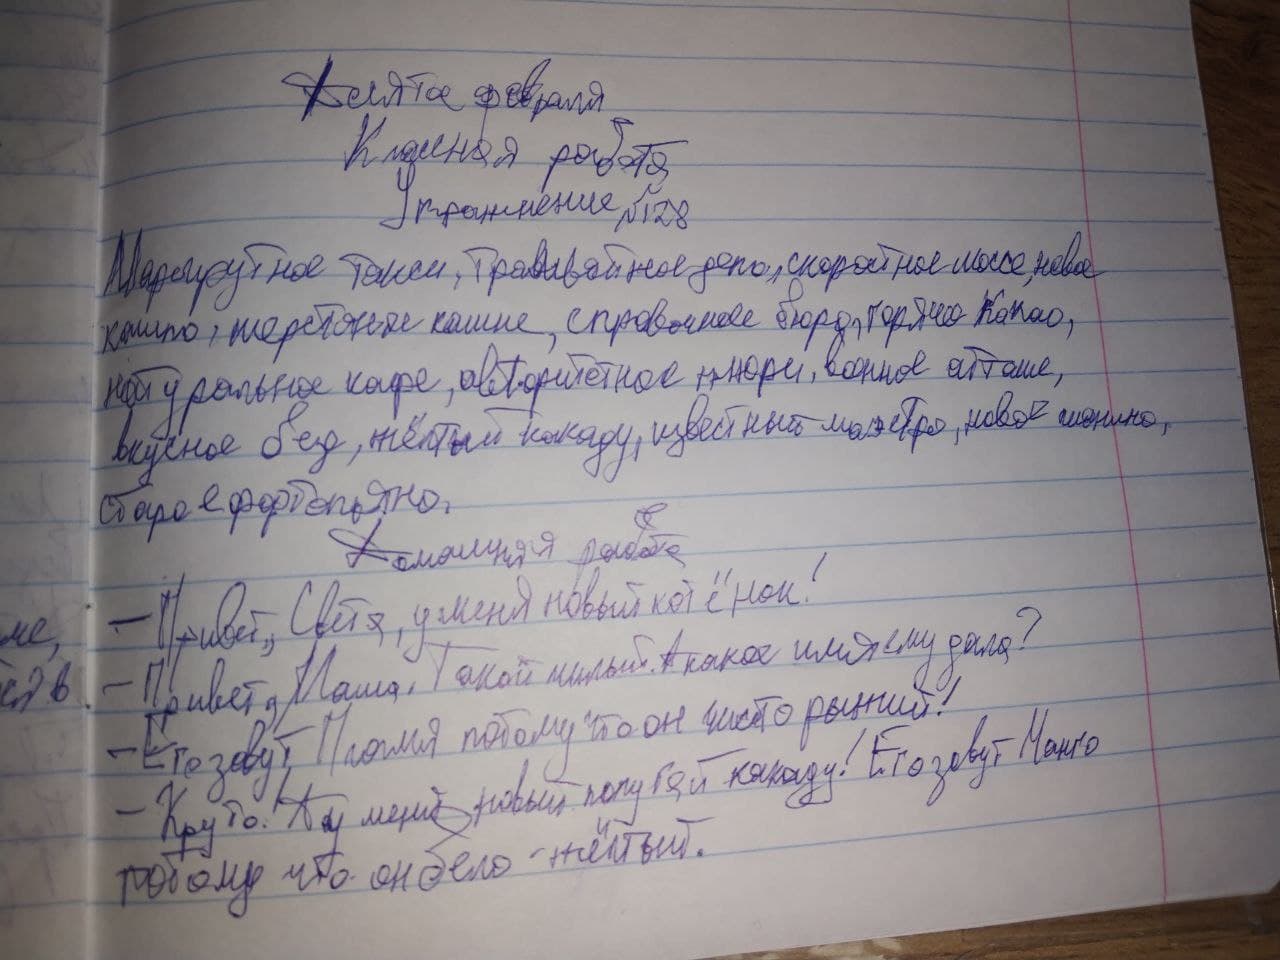 Десятое февраля
Классная работа
Упражнение №128
Маршрутное такси, трамвайное депо, скоростное шоссе, новое
кашпо, шерстяные кашне, справочное бюро, горячо какао,
натуральное кафе, авторитетное жюри, военное атташе,
вкусное безе, жёлтый какаду, известный маэстро, новое пианино,
старое фортопьяно.
Домашняя работа
ме,
в
– Привет, Света, у меня новый котёнок!
– Привет, Маша. Такой милый. А какое имя ему дала?
– Его зовут Пламя потому что он чисто рыжий!
– Круто! А у меня новый попугай какаду! Его зовут Манго
потому что он бело-жёлтый.